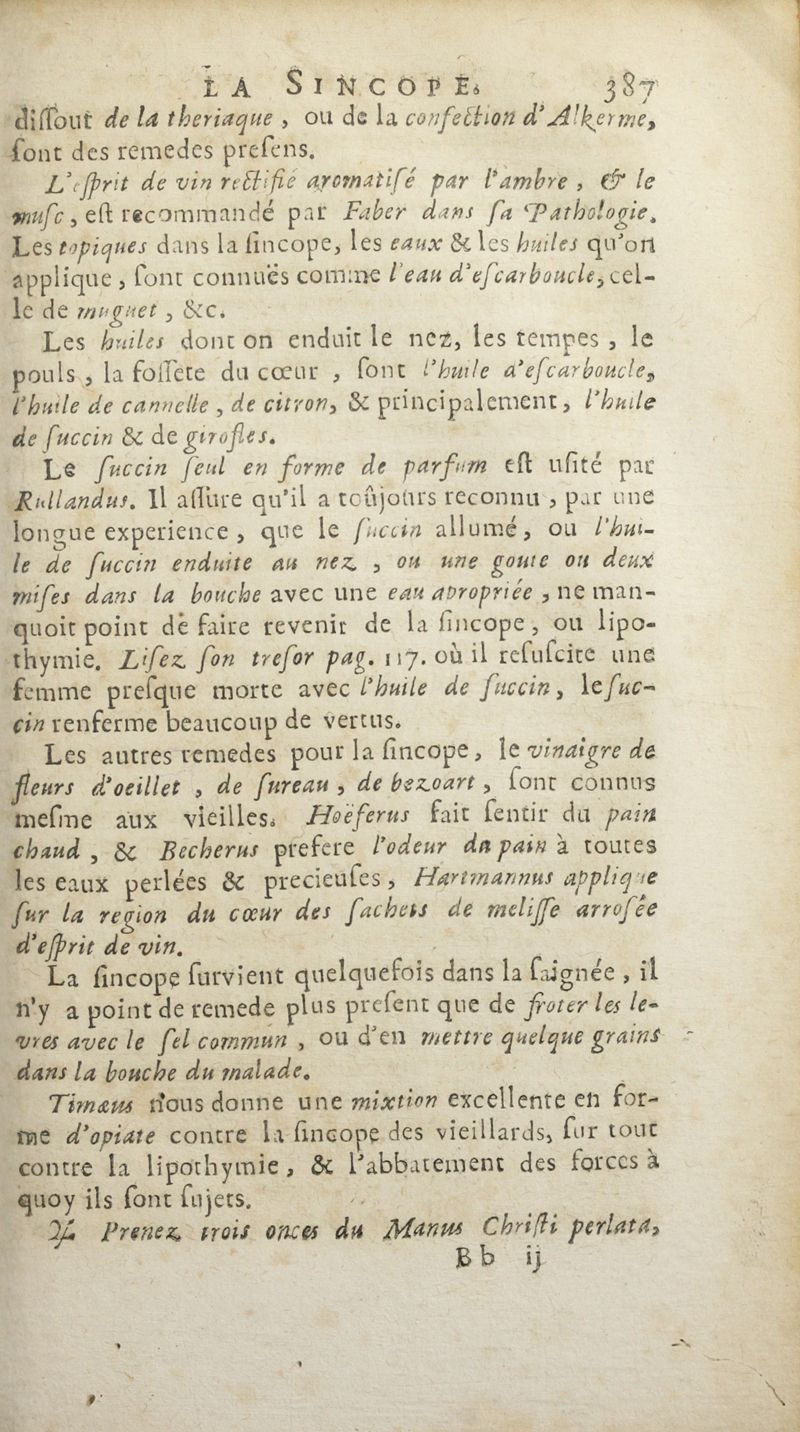 LA SINCOPE. 387
dissout de la theriaque, ou de la confection d'Alkerme,
sont des remedes presens.
L'esprit de vin rectifié aromatisé par l'ambre, & le
musc, est recommandé par Faber dans sa Pathologie.
Les topiques dans la sincope, les eaux & les huiles qu'on
applique, sont connuës comme l'eau d'escarboucle, cel-
le de muguet, &c.
Les huiles dont on enduit le nez, les tempes, le
pouls, la fossete du cœur, sont l'huile d'escarboucle,
l'huile de cannelle, de citron, & principalement, l'huile
de succin & de girofles.
Le succin seul en forme de parfum est usité par
Rullandus. Il assure qu'il a toûjours reconnu, par une
longue experience, que le succin allumé, ou l'hui-
le de succin enduite au nez, ou une goute ou deux
mises dans la bouche avec une eau apropriée, ne man-
quoit point de faire revenir de la sincope, ou lipo-
thymie. Lisez son tresor pag. 117. où il resuscite une
femme presque morte avec l'huile de succin, le suc-
cin renferme beaucoup de vertus.
Les autres remedes pour la sincope, le vinaigre de
fleurs d'oeillet, de sureau, de bezoart, sont connus
mesme aux vieilles. Hoëferus fait sentir du pain
chaud, & Becherus prefere l'odeur du pain à toutes
les eaux perlées & precieuses, Hartmannus applique
sur la region du cœur des sachets de melisse arrosée
d'esprit de vin.
La sincope survient quelquefois dans la saignée, il
n'y a point de remede plus present que de froter les le-
vres avec le sel commun, ou d'en mettre quelque grains
dans la bouche du malade.
Timæus nous donne une mixtion excellente en for-
me d'opiate contre la sincope des vieillards, sur tout
contre la lipothymie, & l'abbatement des forces à
quoy ils sont sujets.
℞ Prenez trois onces du Manus Christi perlata,
Bb ij